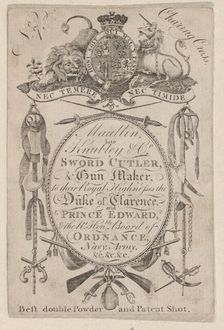 No. 7
Charing Cross.
NEC TEMERE
NEC TIMIDE
By
Maullin,
Knubley & Co.
SWORD CUTLER,
& Gun Maker,
To their Royal Highness the
Duke of Clarence,
and
PRINCE EDWARD,
& the Rt. Honble. Board of
ORDNANCE,
Navy, Army,
&c. &c. &c.
Best double Powder and Patent Shot.